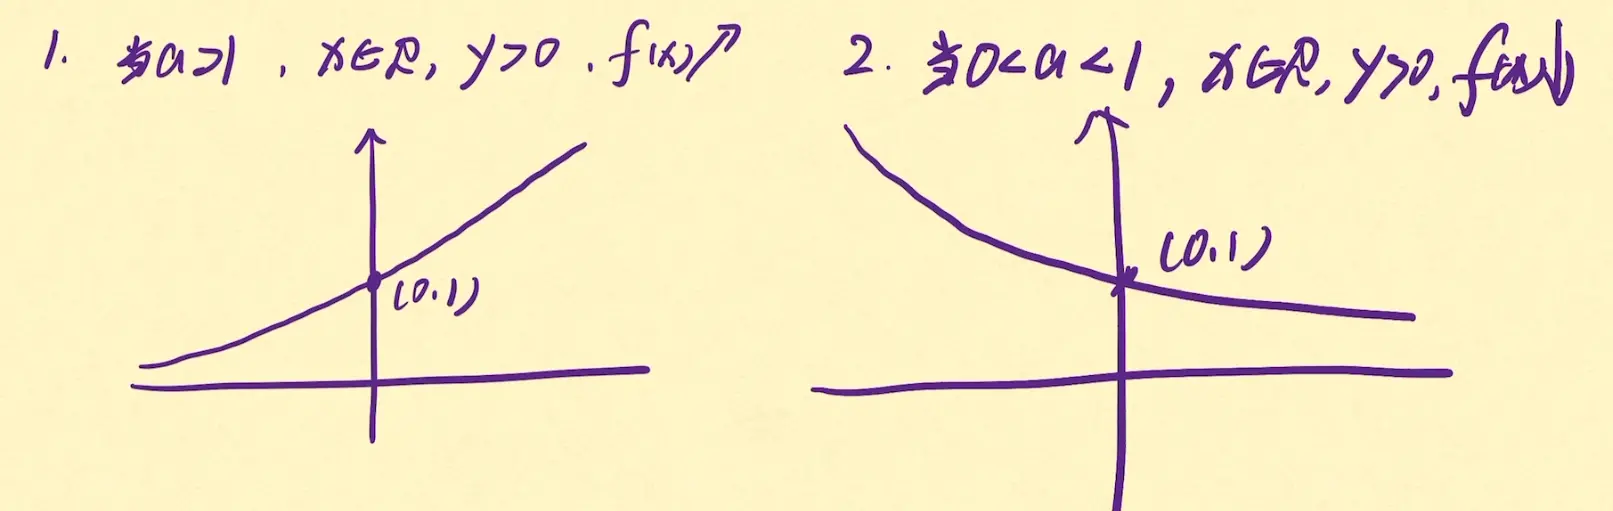 1. 当a>1, x∈R, y>0, f(x)↗
2. 当0<a<1, x∈R, y>0, f(x)↓
(0,1)
(0,1)